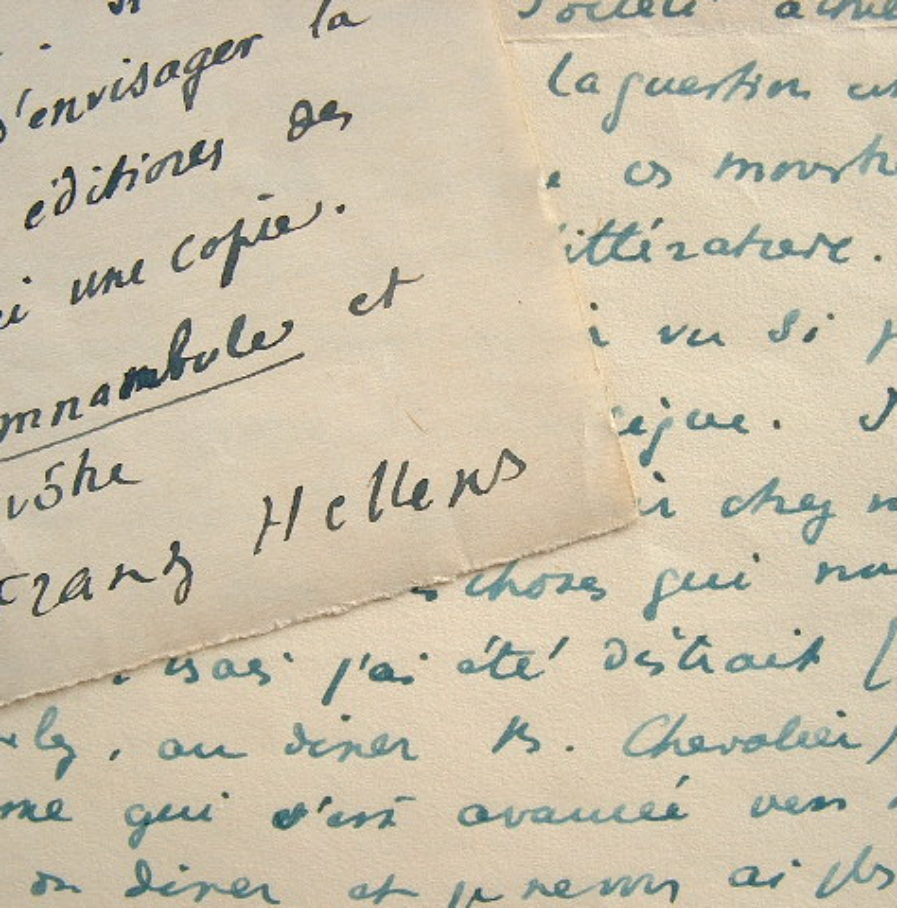 la
s'envisager la
éditions des
une copie.
mnambule et
vôtre
Franz Hellens
la question
ces monstre
littérature.
vu si
chez
choses qui nou
j'ai été distrait
, au diner M. Chevalier
me qui s'est avancé vers
on diner et je ne vous ai plus